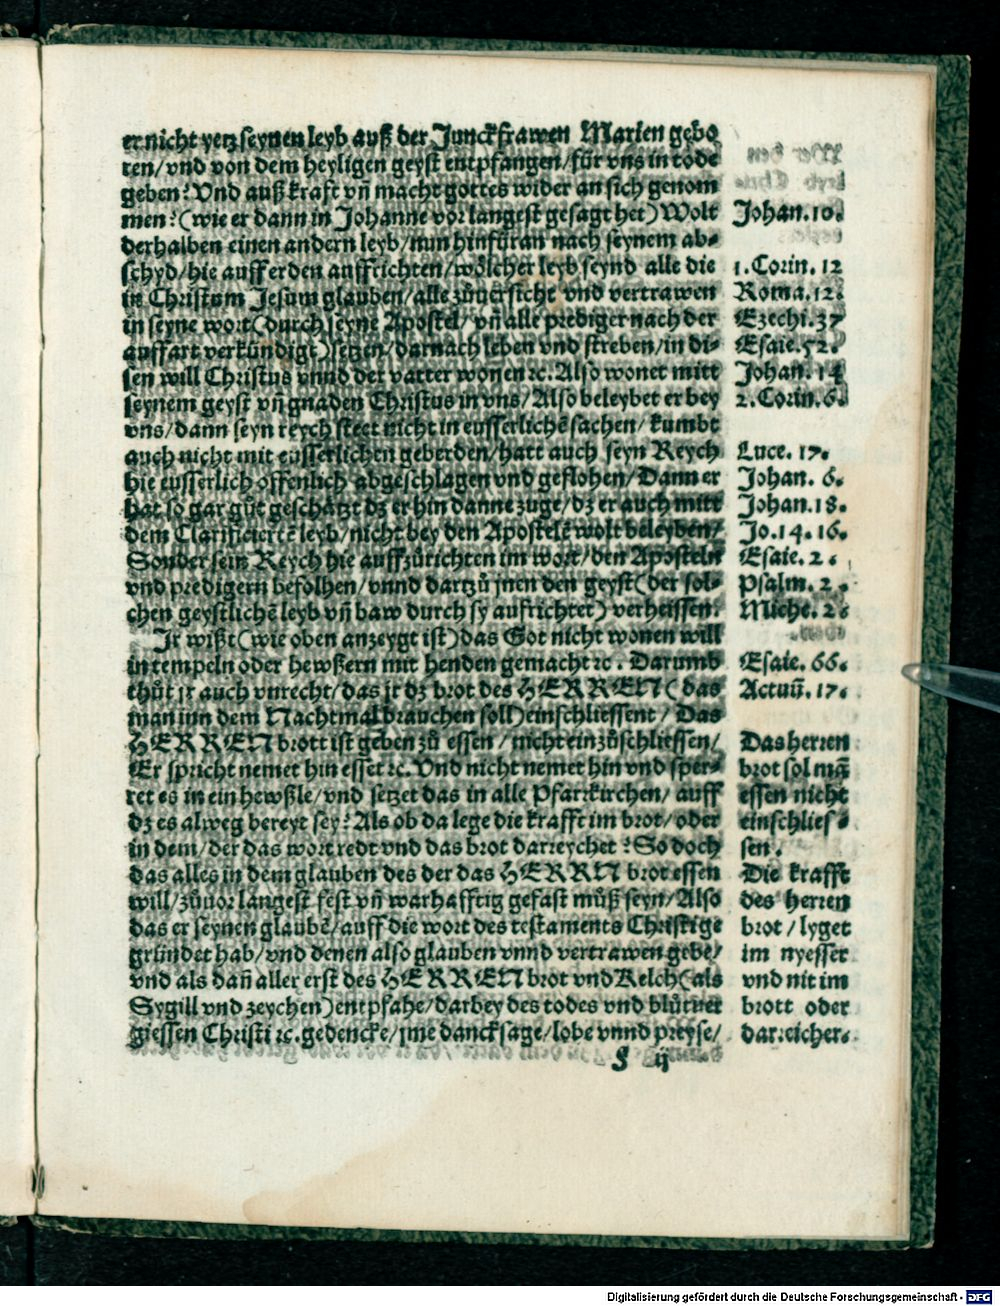 er nicht yetz seynen leyb auß der Junckfrawen Marien gebo
ren/vnd von dem heyligen geyst entpfangen/für vns in tode
geben? Vnd auß kraft vñ macht gottes wider an sich genom
men?(wie er dann in Johanne vor langest gesagt het) Wolt
derhalben einen andern leyb/nun hinfüran nach seynem ab⸗
schyd/hie auff erden auffrichten/wölcher leyb seynd alle die
in Christum Jesum glauben/alle zůuersicht vnd vertrawen
in seyne wort(durch seyne Apostel/vñ alle prediger nach der
auffart verkündigt)setzen/darnach leben vnd streben/in di⸗
sen will Christus vnnd der vatter wonen ꝛc. Also wonet mitt
seynem geyst vñ gnaden Christus in vns/Also beleybet er bey
vns/dann seyn reych steet nicht in eusserlichē sachen/kumbt
auch nicht mit eusserlichen geberden/hatt auch seyn Reych
hie eusserlich offenlich abgeschlagen vnd geflohen/Dann er
hat so gar gůt geschätzt dz er hin danne zuge/dz er auch mitt
dem Clarificiertē leyb/nicht bey den Apostelē wolt beleyben/
Sonder sein Reych hie auffzůrichten im wort/den Aposteln
vnd predigern befolhen/vnnd dartzů jnen den geyst(der sol⸗
chen geystlichē leyb vñ baw durch sy aufrichtet) verheissen.
Jr wißt(wie oben anzeygt ist)das Got nicht wonen will
in tempeln oder hewßern mit henden gemacht ꝛc. Darumb
thůt jr auch vnrecht/das jr dz brot des HERREN(das
man inn dem Nachtmal brauchen soll)einschliessent/Das
HERREN brott ist geben zů essen/nicht einzůschliessen/
Er spricht nemet hin esset ꝛc. Vnd nicht nemet hin vnd sper⸗
ret es in ein hewßle/vnd setzet das in alle Pfarrkirchen/auff
dz es alweg bereyt sey? Als ob da lege die krafft im brot/oder
in dem/der das wort redt vnd das brot darreychet? So doch
das alles in dem glauben des der das HERRN brot essen
will/zůuor langest fest vñ warhafftig gefast můß seyn/Also
das er seynen glaubē/auff die wort des testaments Christi ge
gründet hab/vnd denen also glauben vnnd vertrawen gebe/
vnd als dañ aller erst des HERREN brot vnd Kelch(als
Sygill vnd zeychen)entpfahe/darbey des todes vnd blůtuer
giessen Christi ꝛc. gedencke/jme dancksage/lobe vnnd preyse/
ij
Johan.10.
1.Corin. 12
Roma.12.
Ezechi.37
Esaie.52.
Johan.14
2.Corin.6.
Luce. 17.
Johan. 6.
Johan.18.
Jo.14.16.
Esaie. 2.
Psalm. 2.
Miche. 2.
Esaie. 66.
Actuū. 17.
Das herren
brot sol mā
essen nicht
einschlies⸗
sen.
Die krafft
des herren
brot/lyget
im nyesser
vnd nit im
brott oder
darreicher.
Digitalisierung gefördert durch die Deutsche Forschungsgemeinschaft - DFG